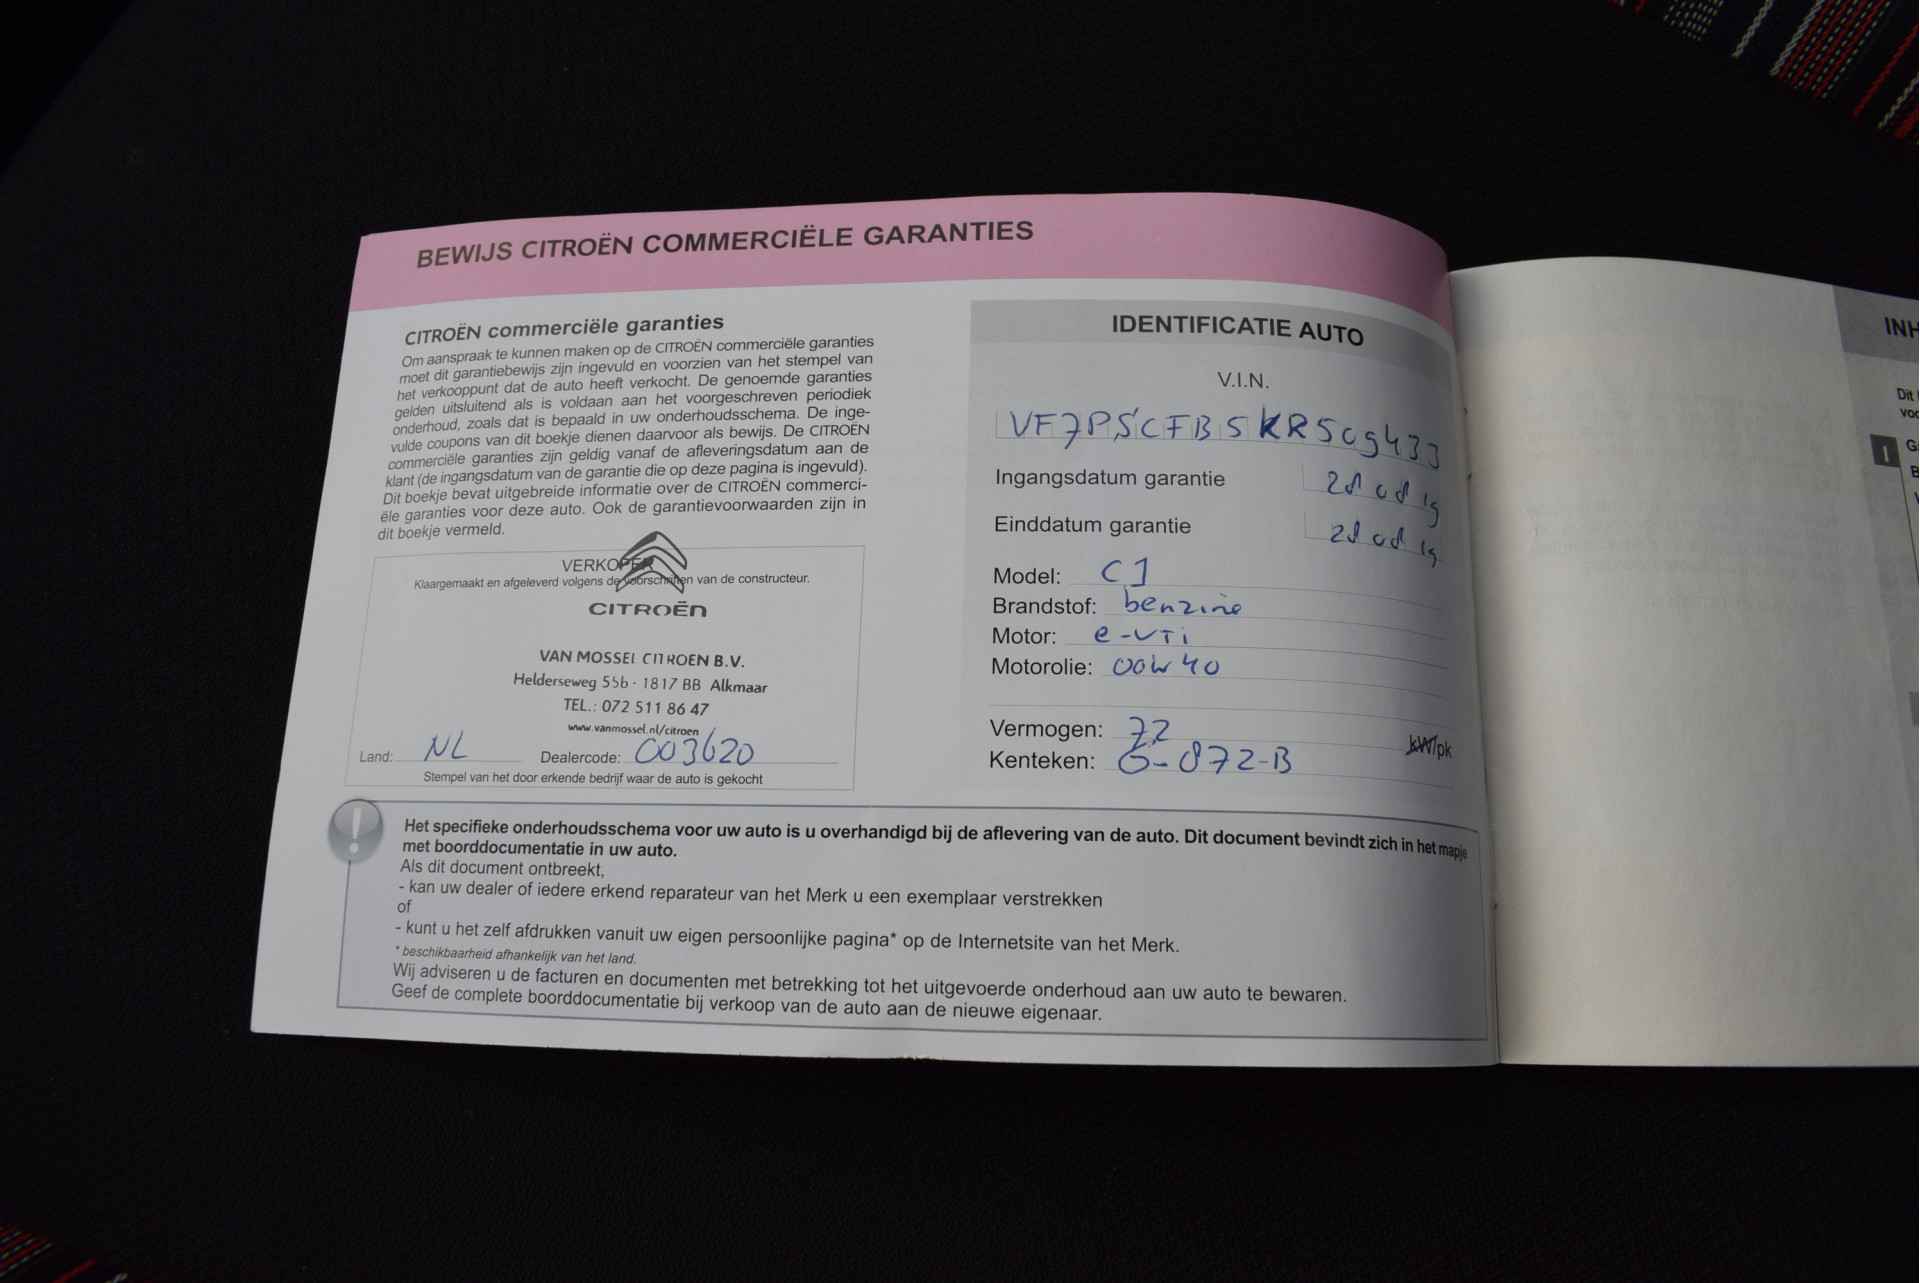 BEWIJS CITROËN COMMERCIËLE GARANTIES
CITROËN commerciële garanties
Om aanspraak te kunnen maken op de CITROËN commerciële garanties
moet dit garantiebewijs zijn ingevuld en voorzien van het stempel van
het verkooppunt dat de auto heeft verkocht. De genoemde garanties
gelden uitsluitend als is voldaan aan het voorgeschreven periodiek
onderhoud, zoals dat is bepaald in uw onderhoudsschema. De inge-
vulde coupons van dit boekje dienen daarvoor als bewijs. De CITROËN
commerciële garanties zijn geldig vanaf de afleveringsdatum aan de
klant (de ingangsdatum van de garantie die op deze pagina is ingevuld).
Dit boekje bevat uitgebreide informatie over de CITROËN commerci-
ële garanties voor deze auto. Ook de garantievoorwaarden zijn in
dit boekje vermeld.
VERKOPER
Klaargemaakt en afgeleverd volgens de voorschriften van de constructeur.
CITROËN
VAN MOSSEL CITROEN B.V.
Helderseweg 55b - 1817 BB Alkmaar
TEL.: 072 511 86 47
www.vanmossel.nl/citroen
Land: NL Dealercode: 003620
Stempel van het door erkende bedrijf waar de auto is gekocht
IDENTIFICATIE AUTO
V.I.N.
VF7PSCFBSKR509433
Ingangsdatum garantie 28 08 19
Einddatum garantie 28 08 19
Model: C1
Brandstof: benzine
Motor: e-VTi
Motorolie: 00W40
Vermogen: 72 kW/pk
Kenteken: G-872-B
Het specifieke onderhoudsschema voor uw auto is u overhandigd bij de aflevering van de auto. Dit document bevindt zich in het mapje
met boorddocumentatie in uw auto.
Als dit document ontbreekt,
- kan uw dealer of iedere erkend reparateur van het Merk u een exemplaar verstrekken
of
- kunt u het zelf afdrukken vanuit uw eigen persoonlijke pagina* op de Internetsite van het Merk.
* beschikbaarheid afhankelijk van het land.
Wij adviseren u de facturen en documenten met betrekking tot het uitgevoerde onderhoud aan uw auto te bewaren.
Geef de complete boorddocumentatie bij verkoop van de auto aan de nieuwe eigenaar.
INH
Dit
voo
1